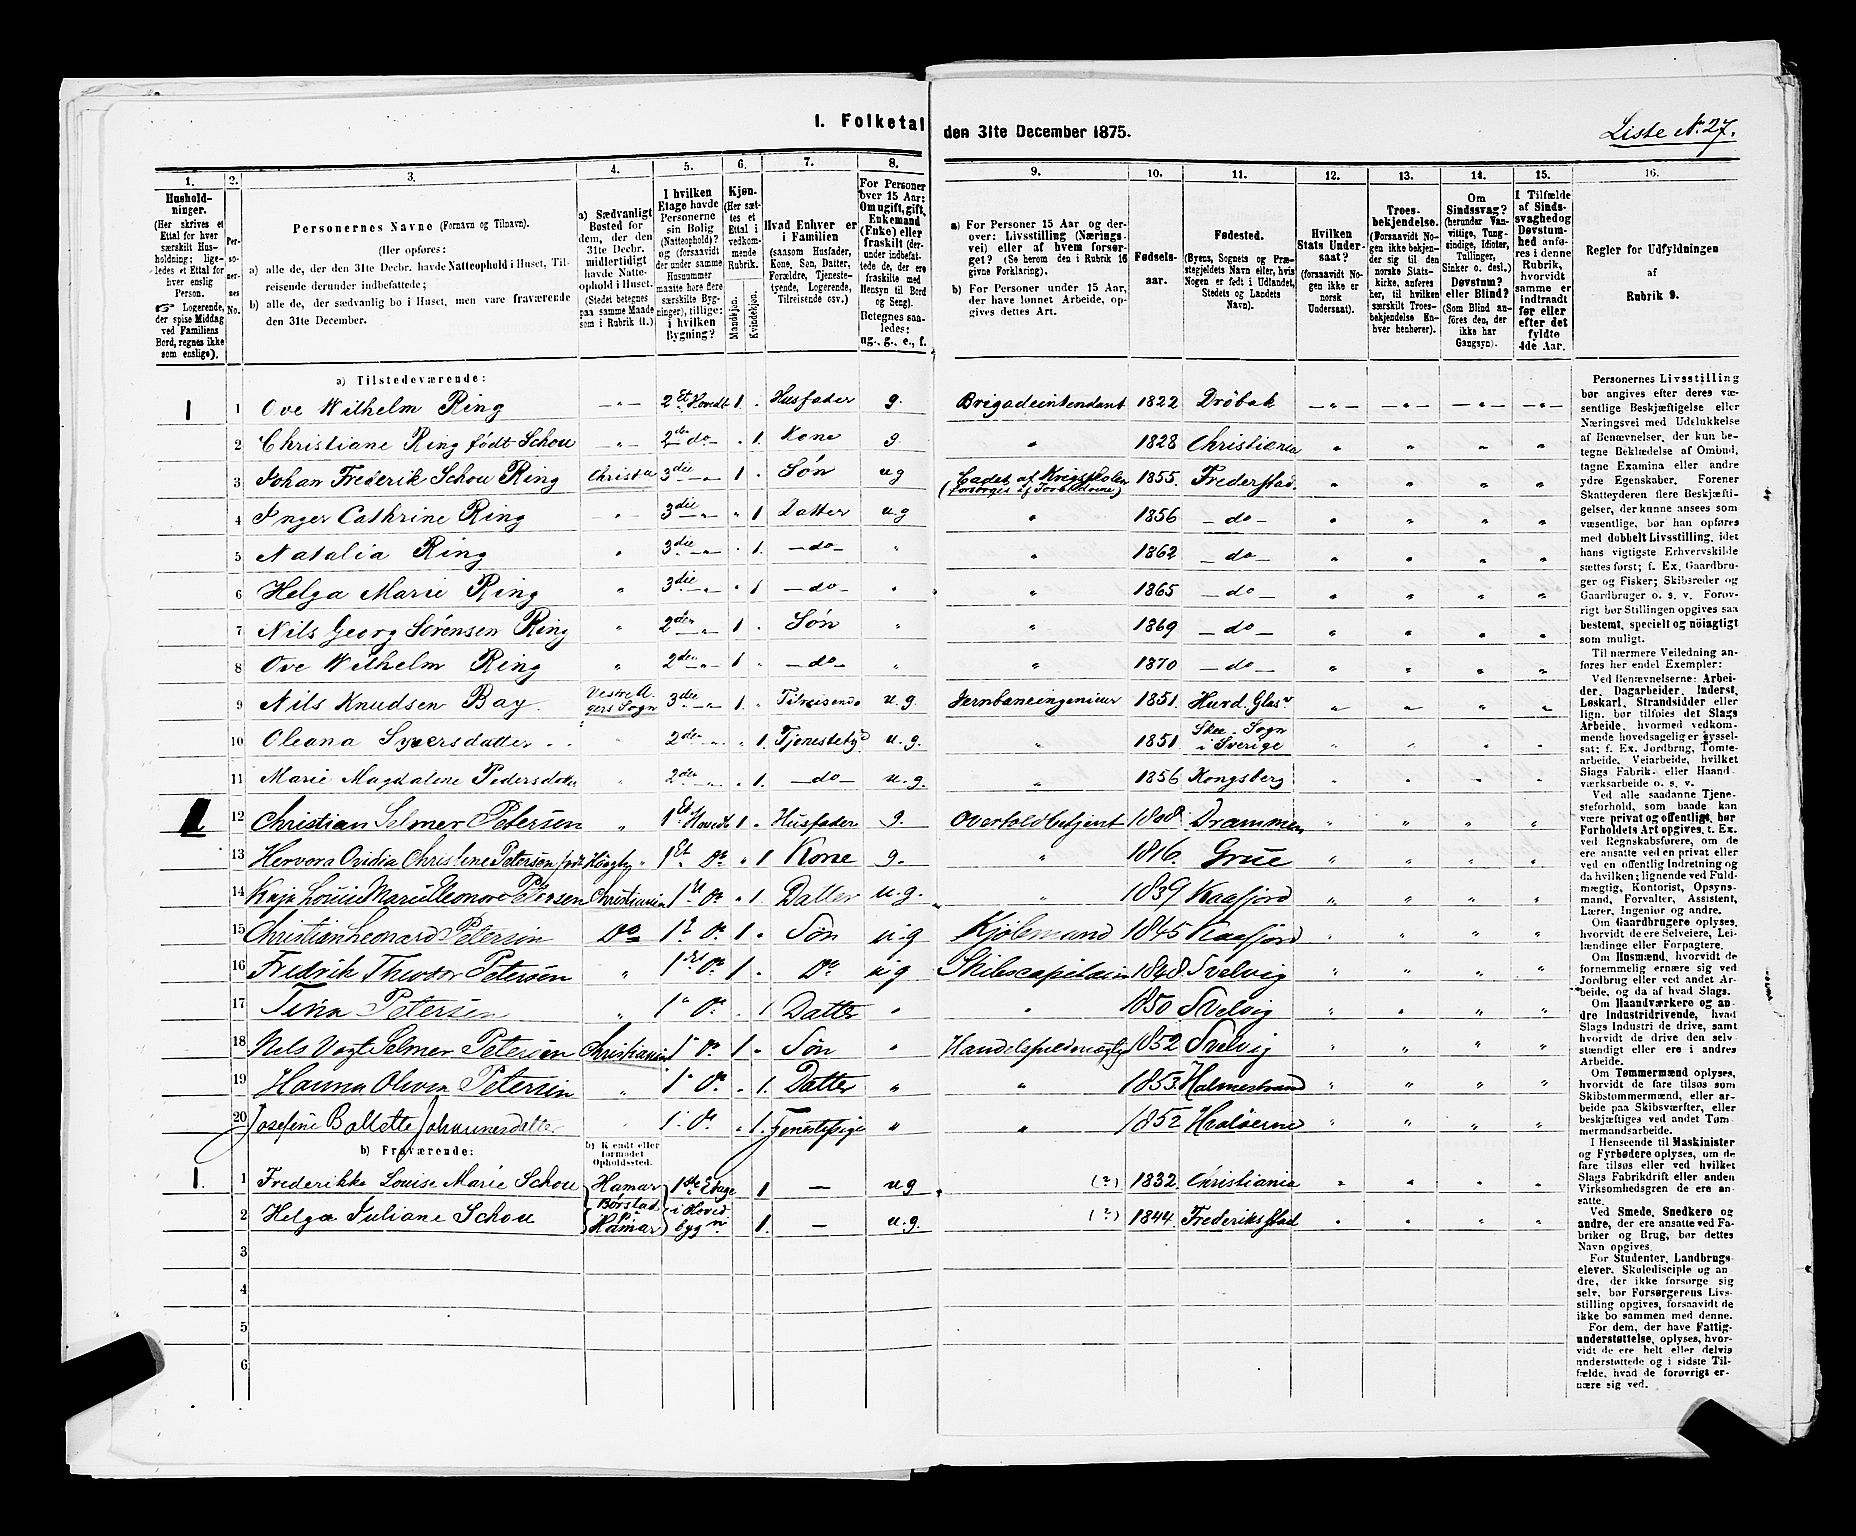 I. Folketal den 31te December 1875.
Liste No. 27.
1. 2. 3. 4. 5. 6. 7. 8. 9. 10. 11. 12. 13. 14. 15. 16.
Hushold-
ninger.
(Her skrives et
Ettal for hver
særskilt Hus-
holdning; lige-
ledes et Ettal for
hver enslig
Person.
☞ Logerende,
der spise Middag
ved Familiens
Bord, regnes ikke
som enslige).
Per-
so-
ner-
nes
No.
Personernes Navne (Fornavn og Tilnavn).
(Her opføres:
a) alle de, der den 31te Decbr. havde Natteophold i Huset, Til-
reisende derunder indbefattede;
b) alle de, der sædvanlig bo i Huset, men vare fraværende
den 31te December.
a) Sædvanligt
Bosted for
dem, der den
31te Decbr.
midlertidigt
havde Natte-
ophold i Huset.
(Stedet betegnes
paa samme Maade
som i Rubrik 11.)
I hvilken
Etage havde
Personerne
sin Bolig
(Natteophold)?
og (forsaavidt
der under samme
Husnummer
maatte høre flere
særskilte Byg-
ninger), tillige:
i hvilken
Bygning?
Kjøn.
(Her sæt-
tes et
Ettal i
vedkom-
mende
Rubrik.
Mandkjøn.
Kvindekjøn.
Hvad Enhver er
i Familien
(saasom Husfader,
Kone, Søn, Datter,
Forældre, Tjeneste-
tyende, Logerende,
Tilreisende osv.)
For Personer
over 15 Aar:
Om ugift, gift,
Enkemand
(Enke) eller
fraskilt (der-
under indbefat-
tede de, der ere
fraskilte med
Hensyn til Bord
og Seng).
Betegnes saa-
ledes:
ug., g., e., f.
a) For Personer 15 Aar og der-
over: Livsstilling (Nærings-
vei) eller af hvem forsør-
get? (Se herom den i Rubrik 16
givne Forklaring).
b) For Personer under 15 Aar,
der have lønnet Arbeide, op-
gives dettes Art.
Fødsels-
aar.
Fødested.
(Byens, Sognets og Præ-
stegjeldets Navn eller, hvis
Nogen er født i Udlandet,
Stedets og Landets
Navn).
Hvilken
Stats Under-
saat?
(forsaavidt No-
gen ikke er
norsk
Undersaat).
Troes-
bekjendelse.
(Forsaavidt No-
gen ikke bekjen-
der sig til den
norske Stats-
kirke, anføres
her, til hvilken
særskilt Troes-
bekjendelse En-
hver henhører).
Om
Sindssvag?
(herunder Van-
vittige, Tung-
sindige, Idioter,
Tullinger,
Sinker o. desl.)
Døvstum?
eller Blind?
(Som Blind an-
føres den, der
ikke har
Gangsyn).
I Tilfælde
af Sinds-
svaghed og
Døvstum-
hed anfø-
res i denne
Rubrik,
hvorvidt
samme er
indtraadt
før eller
efter det
fyldte
4de Aar.
Regler for Udfyldningen
af
Rubrik 9.
a) Tilstedeværende:
1 1 Ove Wilhelm Ring —"— 2 Et. Hovedb 1. . Husfader g. Brigadeintendant 1822 Dröbak —"— —"— —"— —"—
2 Christiane Ring födt Schou —"— 2den —do— " 1. Kone g. " 1828 Christiania " " " "
3 Johan Frederik Schou Ring Christia 3die —"— 1 " Søn u g Cadet af Krigsskolen (forsørges af Forældrene) 1855. Frederstad. " " " "
4 Inger Cathrine Ring " 3die —"— " 1 Datter u g " 1856 —do— " " " "
5 Natalia Ring " 3die —"— " 1. —do— " " 1862 —do— " " " "
6 Helga Marie Ring " 3die —"— " 1 —do— " " 1865 —do— " " " "
7 Nils Georg Sørensen Ring " 2den —"— 1. " Søn " " 1869 —do— " " " "
8 Ove Wilhelm Ring " 2den —"— 1 " —do— " " 1870 —do— " " " "
9 Nils Knudsen Bay. Vestre A- gers Sogn 3die —"— 1. " Tilreisende u. g. Jernbaneingeniør 1851. Hurd. Glasv " " " "
10 Oleana Syversdatter " 2den —"— " 1. Tjenestety'd u. g. " 1851. Skee Sogn i Sverige " " " "
11 Marie Magdalene Pedersdatter " 2den " " 1. —do— u. g. " 1856 Kongsberg " " " "
1 12 Christian Selmer Petersen " 1 Et. Hovedb 1. " Husfader g. Overtoldbetjent 1808. Drammen " " " "
13 Hervora Ovidia Christine Petersen født Höigby " 1 Et. Do " 1. Kone g. " 1816. Grue " " " "
14 Kaja Louise Marie Eleonore Petersen Christiania 1 Do " 1 Datter u. g. " 1839 Kaafjord " " " "
15 Christian Leonard Petersen Do 1 Do 1 " Søn u g Kjøbmand 1845 Kaafjord " " " "
16 Fredrik Theodor Petersen " 1 Do 1 " Do u g Skibscapitain 1848. Svelvig " " " "
17 Tina Petersen " 1 Do " 1 Datter " " 1850 Svelvig " " " "
18 Nils Vogt Selmer Petersen Christiania 1 Do 1 " Søn " Handelsfuldmægtig 1852 Svelvig " " " "
19 Hanna Oliva Petersen " 1 Do " 1. Datter " " 1853. Holmestrand " " " "
20 Josefine Bollette Johannesdatter " 1 Do " 1. Tjenestepige " " 1852 Hvaløerne " " " "
b) Fraværende:
b) Kjendt eller
formodet
Opholdssted.
1. 1 Frederikke Louise Marie Schou Hamar 1ste Etage 1 — u g (?) 1832. Christiania " " " "
2 Helga Juliane Schou Børstad Hamar i Hoved bygn. 1. — u. g. (?) 1844. Frederiksstad " " " "
3
4
5
6
Personernes Livsstilling
bør angives efter deres væ-
sentlige Beskjæftigelse eller
Næringsvei med Udelukkelse
af Benævnelser, der kun be-
tegne Beklædelse af Ombud,
tagne Examina eller andre
ydre Egenskaber. Forener
Skatteyderen flere Beskjæfti-
gelser, der kunne ansees som
væsentlige, bør han opføres
med dobbelt Livsstilling, idet
hans vigtigste Erhvervskilde
sættes først; f. Ex. Gaardbru-
ger og Fisker; Skibsreder og
Gaardbruger o. s. v. Forøv-
rigt bør Stillingen opgives saa
bestemt, specielt og nöiagtigt
som muligt.
Til nærmere Veiledning an-
føres her endel Exempler:
Ved Benævnelserne: Arbei-
der, Dagarbeider, Inderst,
Løskarl, Strandsidder eller
lign. bør tilføies det Slags
Arbeide, hvormed vedkom-
mende hovedsagelig er sysset-
sat; f. Ex. Jordbrug, Tomte-
arbeide, Veiarbeide, hvilket
Slags Fabrik- eller Haand-
værksarbeide o. s. v.
Ved alle saadanne Tjene-
steforhold, som baade kan
være privat og offentligt, bør
Forholdets Art opgives, t. Ex.
ved Regnskabsførere, om de
ere ansatte ved en privat eller
ved en offentlig Indretning og
da hvilken; lignende ved Fuld-
mægtig, Kontorist, Opsyns-
mand, Forvalter, Assistent,
Lærer, Ingeniør og andre.
Om Gaardbrugere oplyses,
hvorvidt de ere Selveiere, Lei-
lændinge eller Forpagtere.
Om Husmænd, hvorvidt de
fornemmelig ernære sig ved
Jordbrug eller ved andet Ar-
beide, og da af hvad Slags.
Om Haandværkere og an-
dre Industridrivende, hvad
Slags Industri de drive, samt
hvorvidt de drive den selv-
stændigt eller ere i andres
Arbeide.
Om Tømmermænd oplyses,
hvorvidt de fare tilsøs som
Skibstømmermænd, eller ar-
beide paa Skibsværfter, eller
beskjæftiges ved andet Tøm-
mermandsarbeide.
I Henseende til Maskinister
og Fyrbødere oplyses, om de
fare tilsøs eller ved hvilket
Slags Fabrikdrift eller anden
Virksomhedsgren de ere an-
satte.
Ved Smede, Snedkere og
andre, der ere ansatte ved Fa-
briker og Brug, bør dettes
Navn opgives.
For Studenter, Landbrugs-
elever, Skoledisciple og an-
dre, der ikke forsørge sig
selv, bør Forsørgerens Livs-
stilling opgives, forsaavidt de
ikke bo sammen med denne.
For dem, der have Fattig-
understøttelse, oplyses, hvor-
vidt de ere helt eller delvis
understøttede og i sidste Til-
fælde, hvad de forøvrigt er-
nære sig ved.